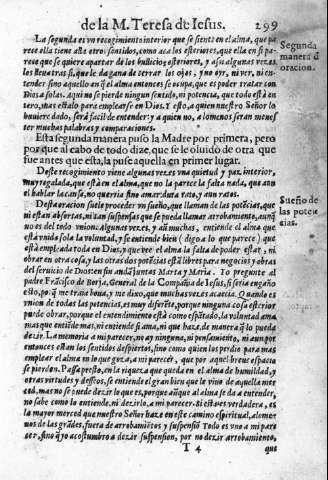 de la M. Teresa de Iesus. 299
La segunda es vn recogimiento interior que se siente en el alma, que pa
rece ella tiene acà otros sentidos, como acà los exteriores, que ella en si pa-
rece que se quiere apartar de los bullicios exteriores, y assi algunas vezes
los lleua tras si, que le da gana de cerrar los ojos, y no oyr, ni ver, ni en-
tender sino aquello en q̃ el alma entonces se ocupa, que es poder tratar con
Dios a solas. Aqui no se pierde ningun sentido, ni potencia, que todo està en
tero, mas estalo para emplearse en Dios. Y esto, a quien nuestro Señor lo
huuiere dado, serà facil de entender: y a quien no, alomenos seràn menes
ter muchas palabras y comparaciones.
Segunda
manera d
oracion.
Esta segunda manera puso la Madre por primera, pero
por que al cabo de todo dize, que se le oluidò de otra que
fue antes que esta, la puse aquella en primer lugar.
Deste recogimiento viene algunas vezes vna quietud y paz interior,
muy regalada, que està en el alma, que no la parece le falta nada, que aun
el hablar la cansa, no querria sino amar: dura rato, y aun ratos.
Desta oracion suele proceder vn sueño, que llaman de las potẽcias, que
ni estan absortas, ni tan suspensas que se pueda llamar arrobamiento, aunq̃
no es del todo vnion: algunas vezes, y aũ muchas, entiende el alma que
està vnida sola la voluntad, y se entiende bien (digo a lo que parece) que
està empleada toda en Dios, y que vee el alma la falta de poder estar, ni
obrar en otra cosa, y las otras dos potencias estã libres para negocios y obras
del seruicio de Dios: en fin andã juntas Marta y Maria. Yo preguntè al
padre Frãcisco de Borja, General de la Compañia de Iesus, si seria engaño
esto, por q̃ me traìa boua, y me dixo, que muchas vezes acaecia. Quando es
Sueño de
las potẽ
cias.
vnion de todas las potencias, es muy diferẽte, porque ninguna cosa
puede obrar, porque el entendimiento està como espãtado, la voluntad ama
mas que entiẽde mas, ni entiende si ama, ni que haze, de manera q̃ lo pueda
dezir. La memoria a mi parecer, no ay ninguna, ni pensamiento, ni aun por
entonces estan los sentidos despiertos, sino como quien los perdio para mas
emplear el alma en lo que goza, a mi parecer, que por aquel breue espacio
se pierden. Passa presto, en la riqueza que queda en el alma de humildad, y
otras virtudes y desseos, se entiende el gran bien que le vino de aquella mer
ced, mas no se puede dezir lo que es, porque aunque al alma se da a entender,
no sabe como lo entiende, ni dezirlo, a mi parecer. Si esta es verdadera, es
la mayor merced que nuestro Señor haze en este camino espiritual, alome
nos de las grãdes, fuera de arrobamiẽtos y suspensiõ Todo es vno a mi pare
cer, sino q̃ yo acostumbro a dezir suspension, por no dezir arrobamiento,
T 4 que